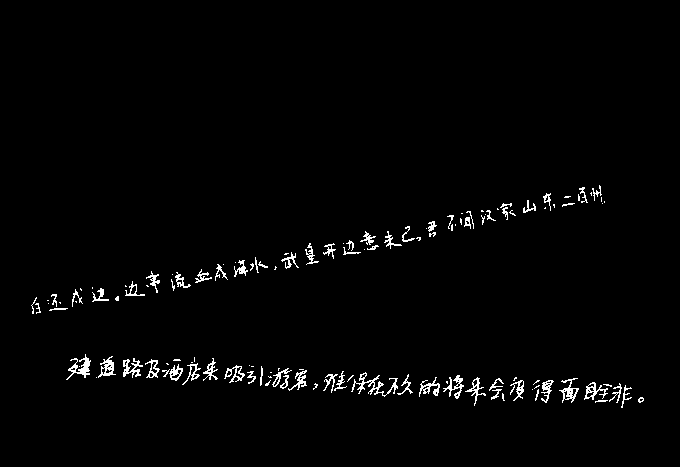 白还戍边。边亭流血成海水，武皇开边意未已。君不闻汉家山东二百州
建道路及酒店来吸引游客，难保在不久的将来会变得面目全非。